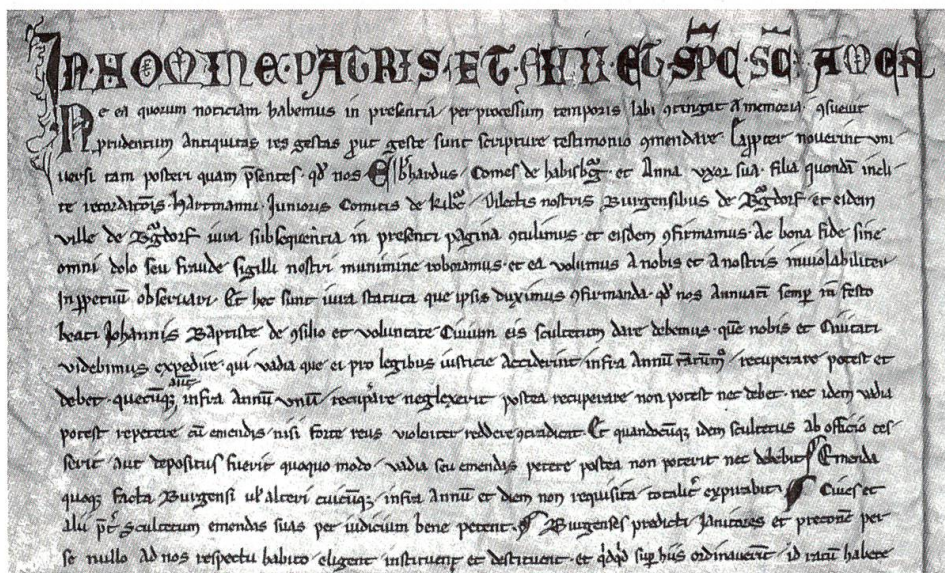 IN·NOMINE·PATRIS·ET·FILII·ET·SPC·SCI·AMEN
Ne ea quorum noticiam habemus in presentia per processum temporis labi ꝯtingat a memoria· ꝯsuevit
prudentum Antiquitas res gestas ꝓut geste sunt scripture testimonio ꝯmendare· noverint uni
versi tam posteri quam p̄sentes· qd̄ nos Ebhardus Comes de habisbg· et Anna vxor sua· filia quondā incli
te recordatōis· hartmanni Junioris Comitis de Kibg· Dilectis nostris Burgensibus de Bgdorf· et eidem
ville de Bgdorf iura subsequentia in presenti pagina ꝯtulimus· et eisdem ꝯfirmamus· Ac bona fide sine
omni dolo seu fraude sigilli nostri munimine roboramus· et ea volumus a nobis et a nostris inviolabiliter
Inꝑpetuū observari· Et hec sunt iura statuta que ipsis duximus ꝯfirmanda· qd̄ nos Annuatī semꝑ in festo
beati Johannis Baptiste de ꝯsilio et voluntate Civium eis scultetum dare debemus· quē nobis et Civitati
videbimus expedire· qui vadia que ei pro legibus iusticie Acciderint infra Annū recuperare potest et
debet· quecūqꝫ aut̄ infra Annū vnū recuꝑare neglexerit postea recuperare non potest nec debet· nec idem vadia
potest repetere cū emendis· nisi forte reus violenter reddere ꝯtradicat· Et quandocūqꝫ idem scultetus ab officio ces
serit Aut depositus fuerit quoquo modo· vadia seu emendas petere postea non poterit nec debebit ¶ Emenda
quoqꝫ facta Burgensi ul̄ alteri cuicūqꝫ infra Annū et diem non requisita totalit̄ expirabit· ¶ Cives et
alii p̄t̄ Scultetum emendas suas per iudicium bene petent· ¶ Burgenses predicti Janitores et preconē per
se nullo Ad nos respectu habito eligent instituent et destituent· et qdqd suꝑ hiis ordinaverīt id ratū habere